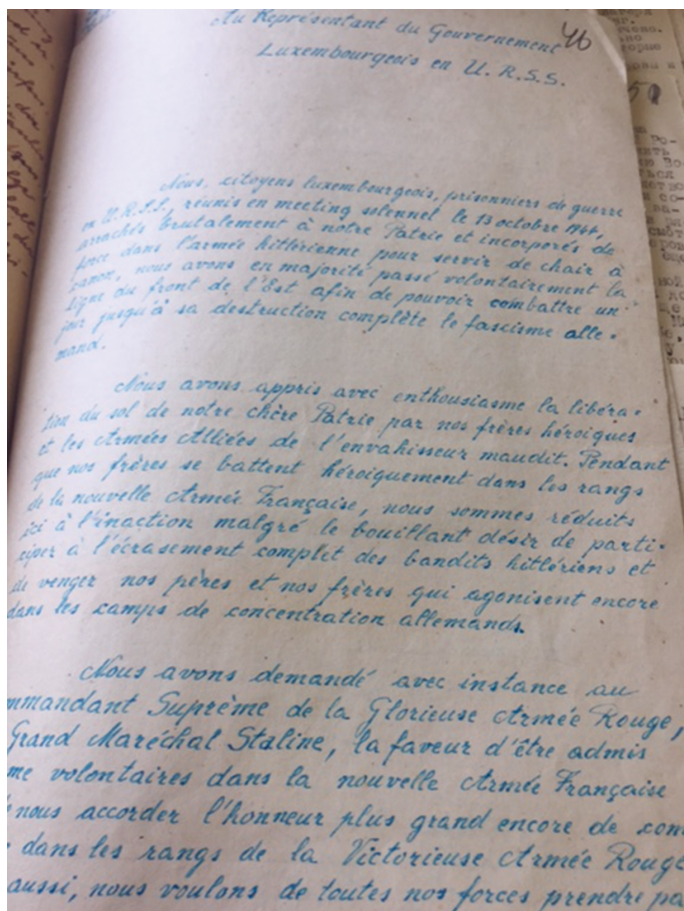 Au Représentant du Gouvernement 46
Luxembourgeois en U.R.S.S.
Nous, citoyens luxembourgeois, prisonniers de guerre
en U.R.S.S., réunis en meeting solennel le 13 octobre 1944,
arrachés brutalement à notre Patrie et incorporés de
force dans l'armée hitlérienne pour servir de chair à
canon, nous avons en majorité passé volontairement la
ligne du front de l'Est afin de pouvoir combattre un
jour jusqu'à sa destruction complète le fascisme alle-
mand.
Nous avons appris avec enthousiasme la libéra-
tion du sol de notre chère Patrie par nos frères héroiques
et les Armées Alliées de l'envahisseur maudit. Pendant
que nos frères se battent héroiquement dans les rangs
de la nouvelle Armée Française, nous sommes réduits
ici à l'inaction malgré le bouillant désir de parti-
ciper à l'écrasement complet des bandits hitlériens et
de venger nos pères et nos frères qui agonisent encore
dans les camps de concentration allemands.
Nous avons demandé avec instance au
mmandant Suprème de la Glorieuse Armée Rouge,
Grand Maréchal Staline, la faveur d'être admis
me volontaires dans la nouvelle Armée Française
nous accorder l'honneur plus grand encore de com
dans les rangs de la Victorieuse Armée Rouge
aussi, nous voulons de toutes nos forces prendre pa